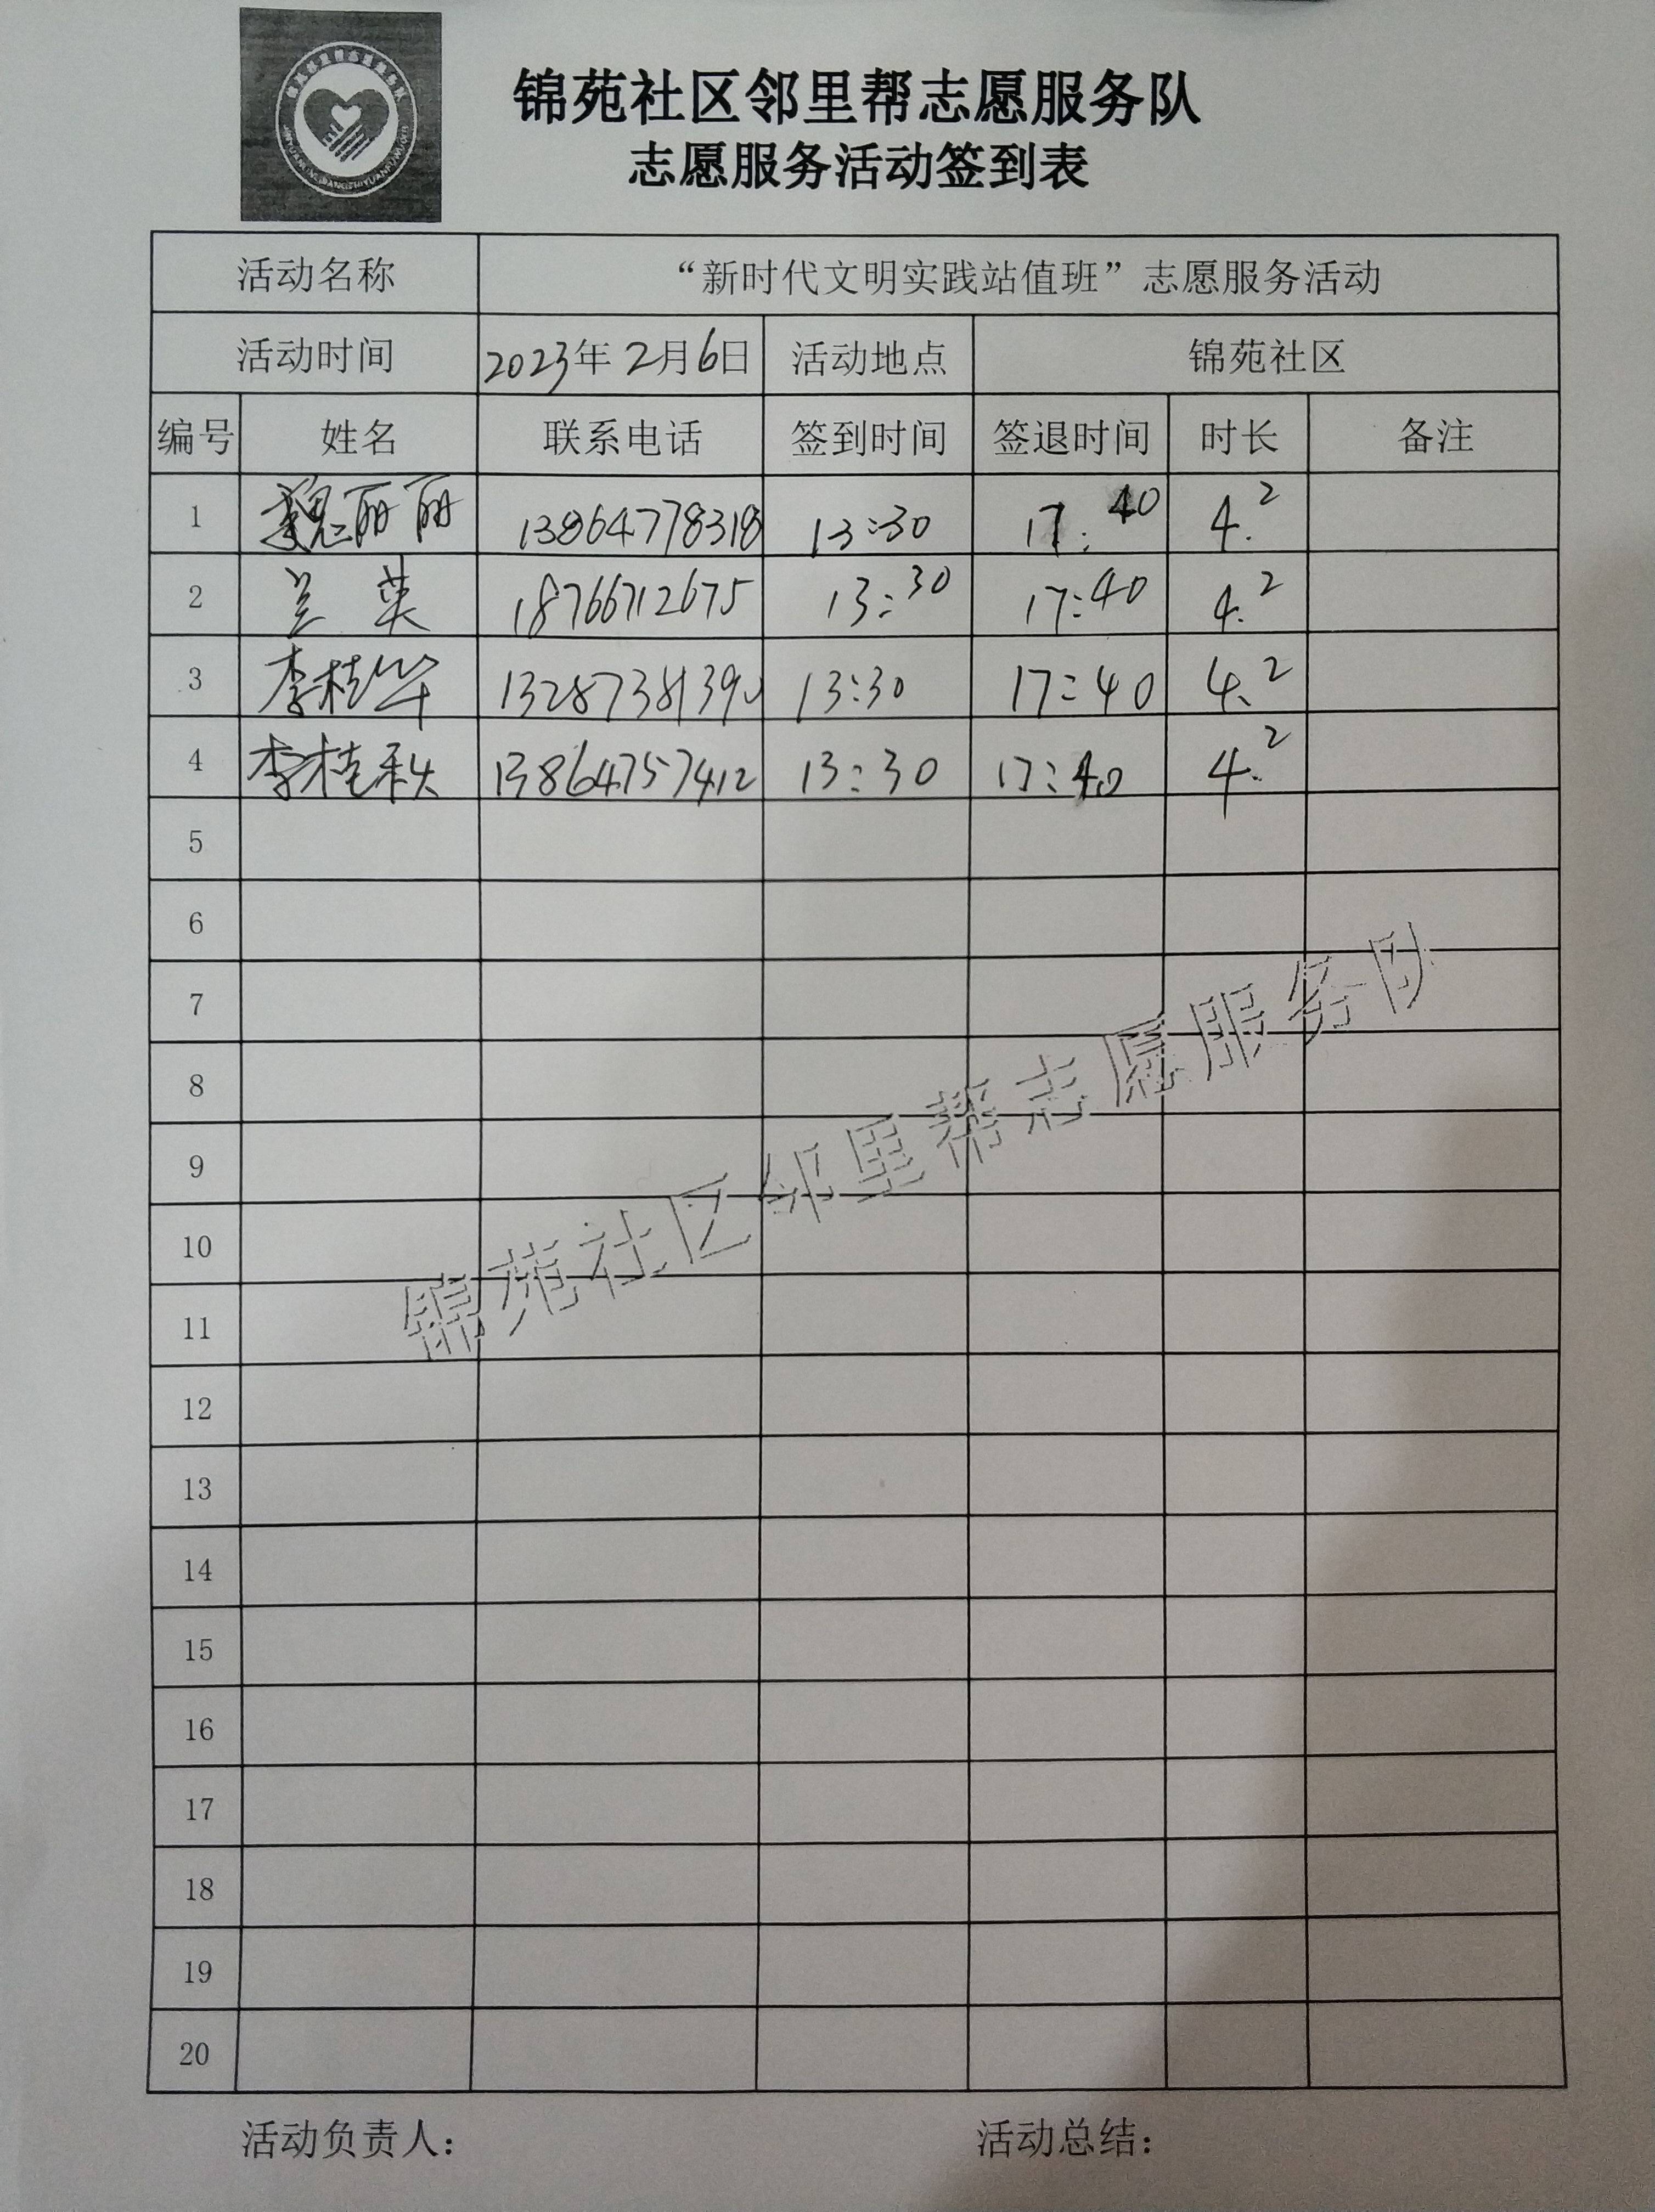 锦苑社区邻里帮志愿服务队
志愿服务活动签到表
活动名称 “新时代文明实践站值班”志愿服务活动
活动时间 2023年 2月6日 活动地点 锦苑社区
编号 姓名 联系电话 签到时间 签退时间 时长 备注
1 魏丽丽 13864778318 13:30 17:40 4.2
2 兰英 18766712675 13:30 17:40 4.2
3 李桂华 13:30 17:40 4.2
4 李桂秋 13864757412 13:30 17:40 4.2
5
6
7
8
9
10
11
12
13
14
15
16
17
18
19
20
锦苑社区邻里帮志愿服务队
活动负责人： 活动总结：